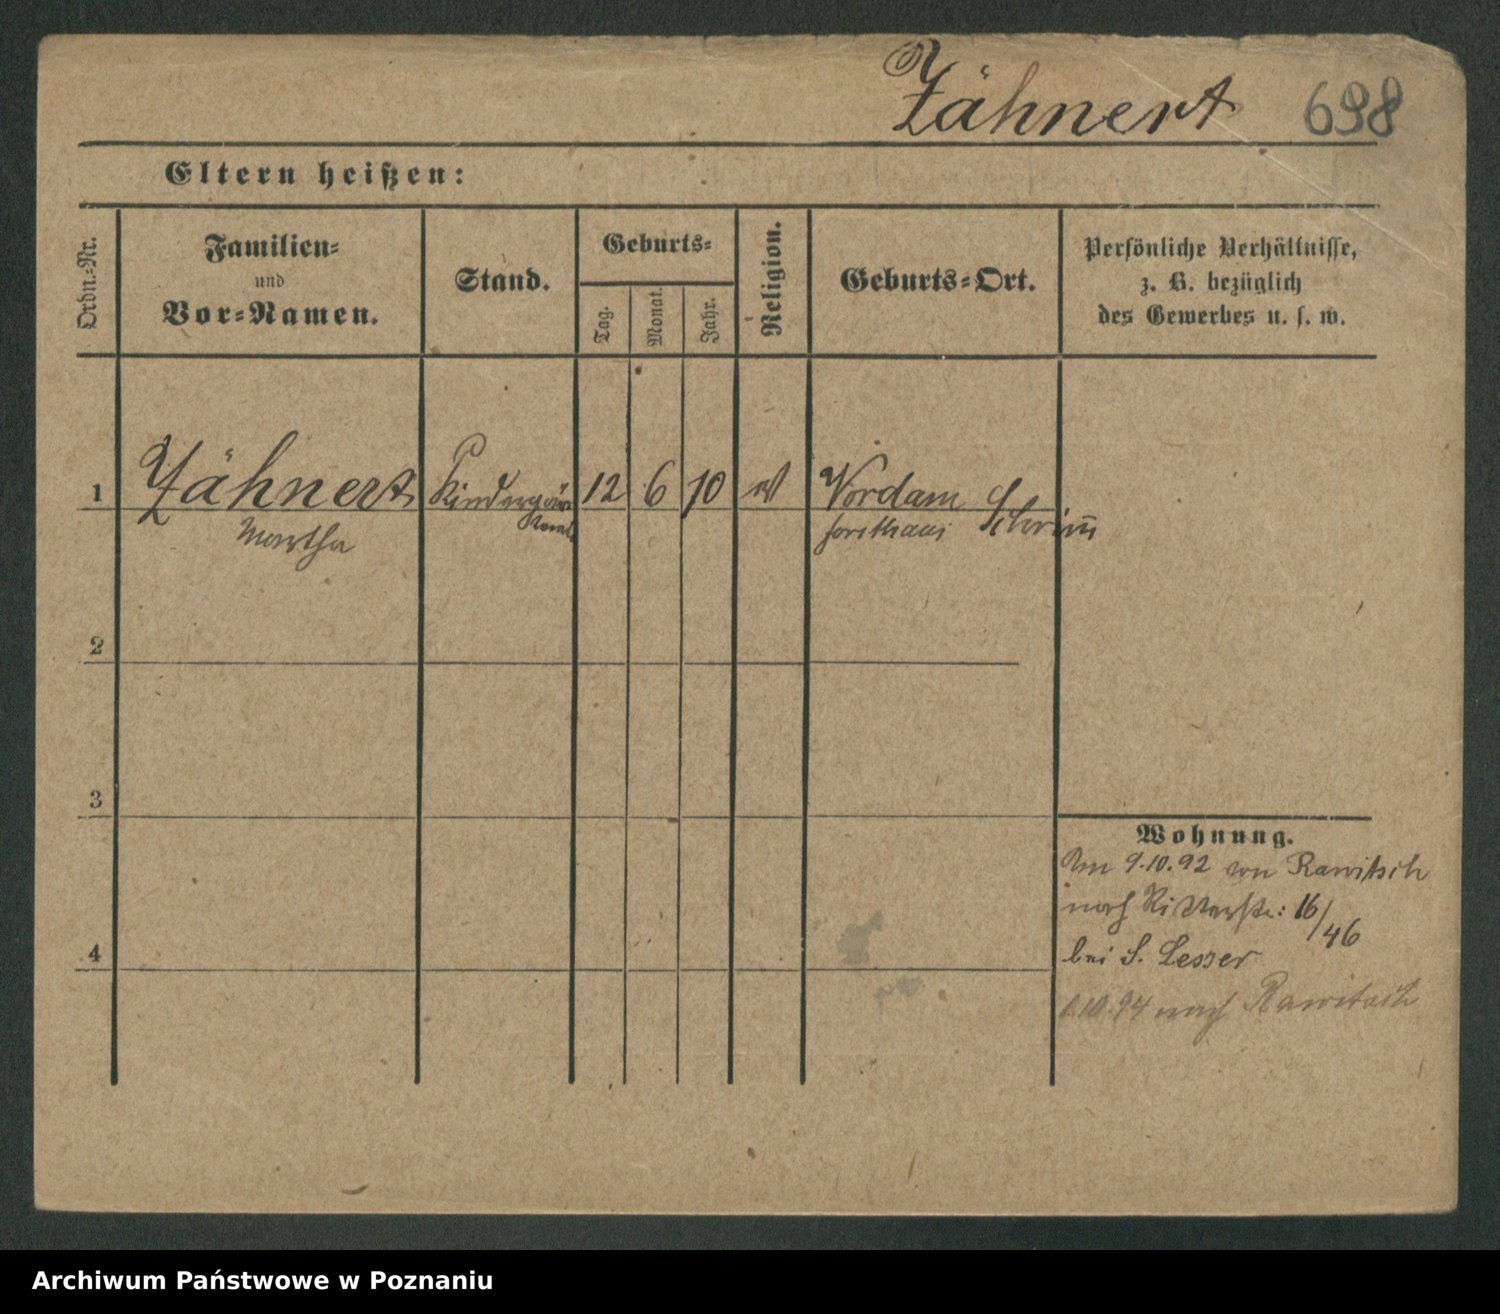 Zähnert 698
Eltern heißen:
Ordn.-Nr.
Familien-
und
Vor-Namen.
Stand.
Geburts-
Tag.
Monat.
Jahr.
Religion.
Geburts-Ort.
Persönliche Verhältnisse,
z. B. bezüglich
des Gewerbes u. s. w.
1 Zähnert 12 6 70 ev Vordam
Martha forsthaus Schrim̄
2
3
4
Wohnung.
Am 9.10.92 von Rawitsch
nach Ritterstr: 16/46
bei S. Lesser
1.10.94 nach Rawitsch
Archiwum Państwowe w Poznaniu